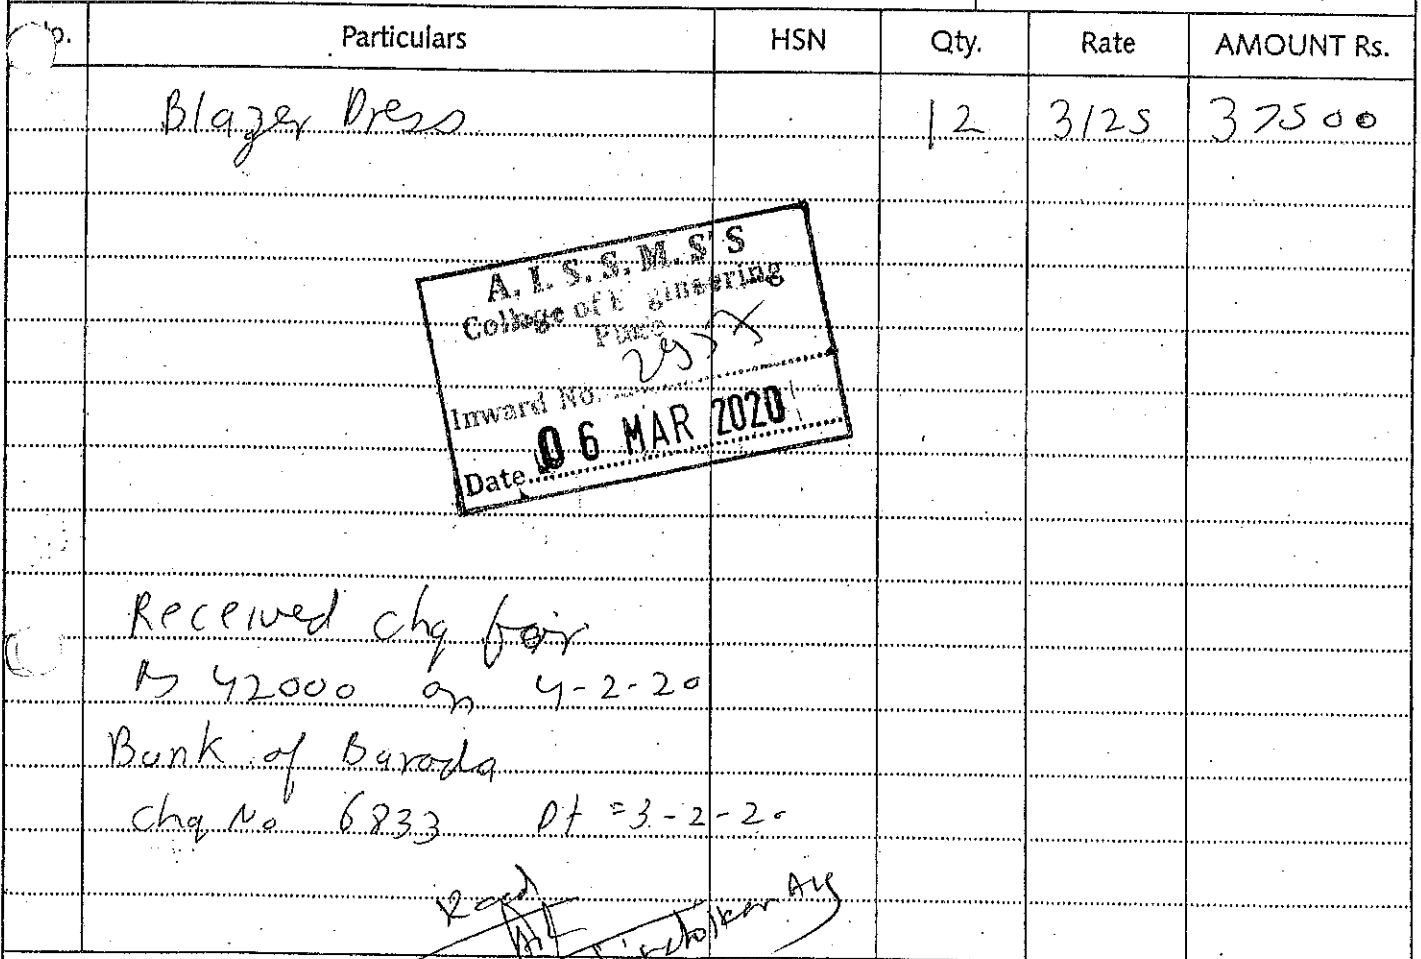 No. Particulars HSN Qty. Rate AMOUNT Rs.
Blazer Dress 12 3125 37500
A. I. S. S. M. S'S
College of Engineering
Pune
Inward No.
Date 06 MAR 2020
Received chq for
Rs 42000 on 4-2-20
Bank of Baroda
Chq No 6833 Dt = 3-2-20
Recd